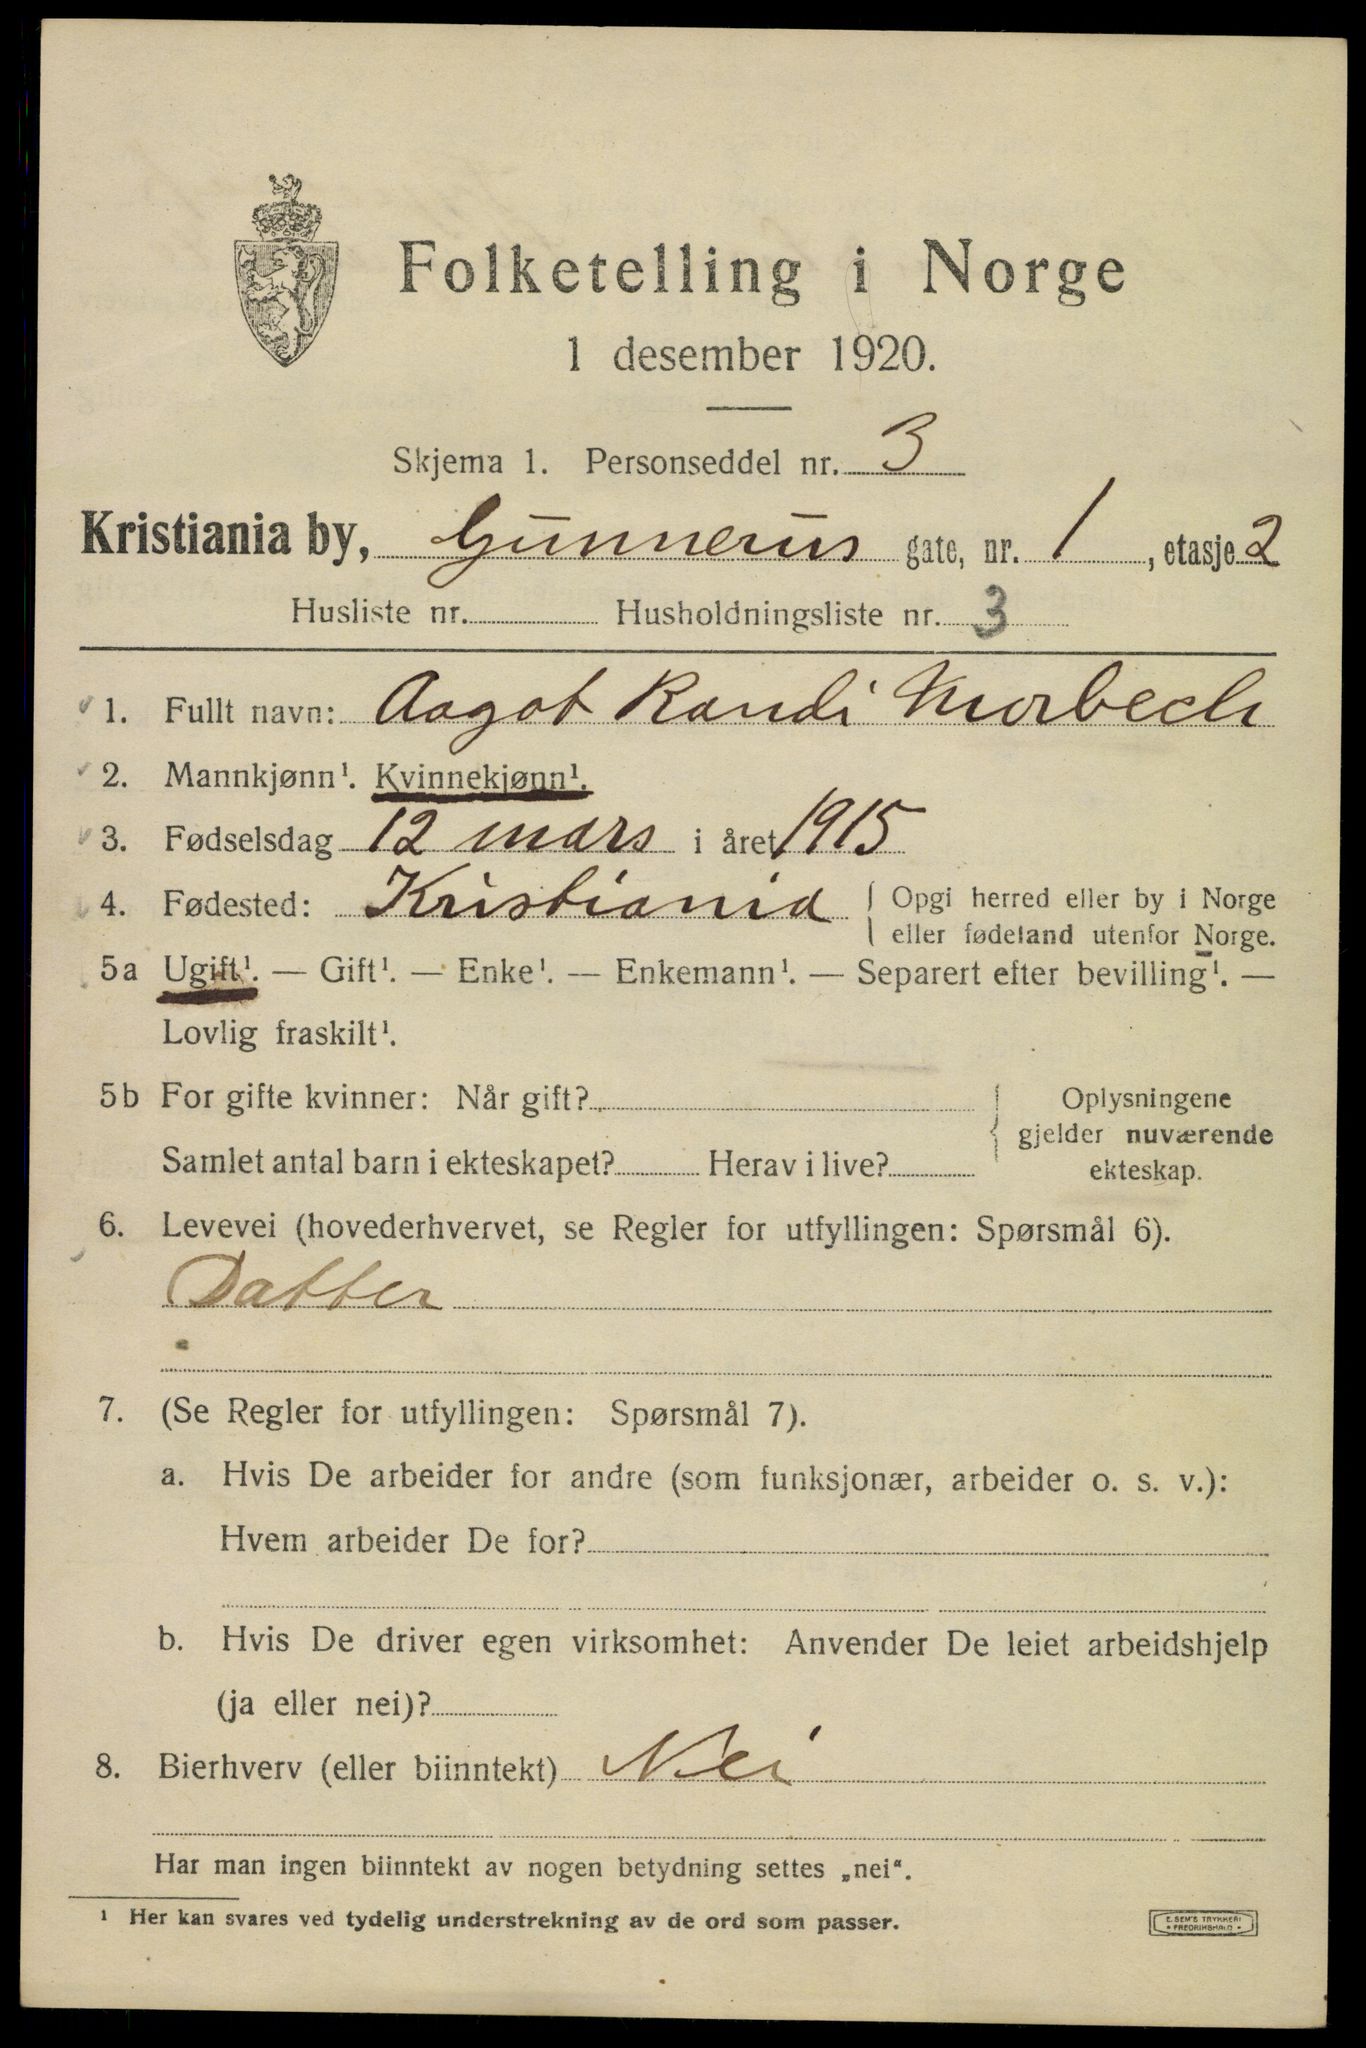 Folketelling i Norge
1 desember 1920.
Skjema 1. Personseddel nr. 3
Kristiania by, Gunnerus gate, nr. 1, etasje 2
Husliste nr. Husholdningsliste nr. 3
1. Fullt navn: Aagot Randi Morbech
2. Mannkjønn¹. Kvinnekjønn¹.
3. Fødselsdag 12 mars i året 1915
4. Fødested: Kristiania { Opgi herred eller by i Norge
eller fødeland utenfor Norge.
5a Ugift¹. — Gift¹. — Enke¹. — Enkemann¹. — Separert efter bevilling¹. —
Lovlig fraskilt¹.
5b For gifte kvinner: Når gift? { Oplysningene
gjelder nuværende
Samlet antal barn i ekteskapet? Herav i live? ekteskap.
6. Levevei (hovederhvervet, se Regler for utfyllingen: Spørsmål 6).
Datter
7. (Se Regler for utfyllingen: Spørsmål 7).
a. Hvis De arbeider for andre (som funksjonær, arbeider o. s. v.):
Hvem arbeider De for?
b. Hvis De driver egen virksomhet: Anvender De leiet arbeidshjelp
(ja eller nei)?
8. Bierhverv (eller biinntekt) Nei
Har man ingen biinntekt av nogen betydning settes „nei“.
¹ Her kan svares ved tydelig understrekning av de ord som passer.
E. SEM'S TRYKKERI
• FREDRIKSHALD •